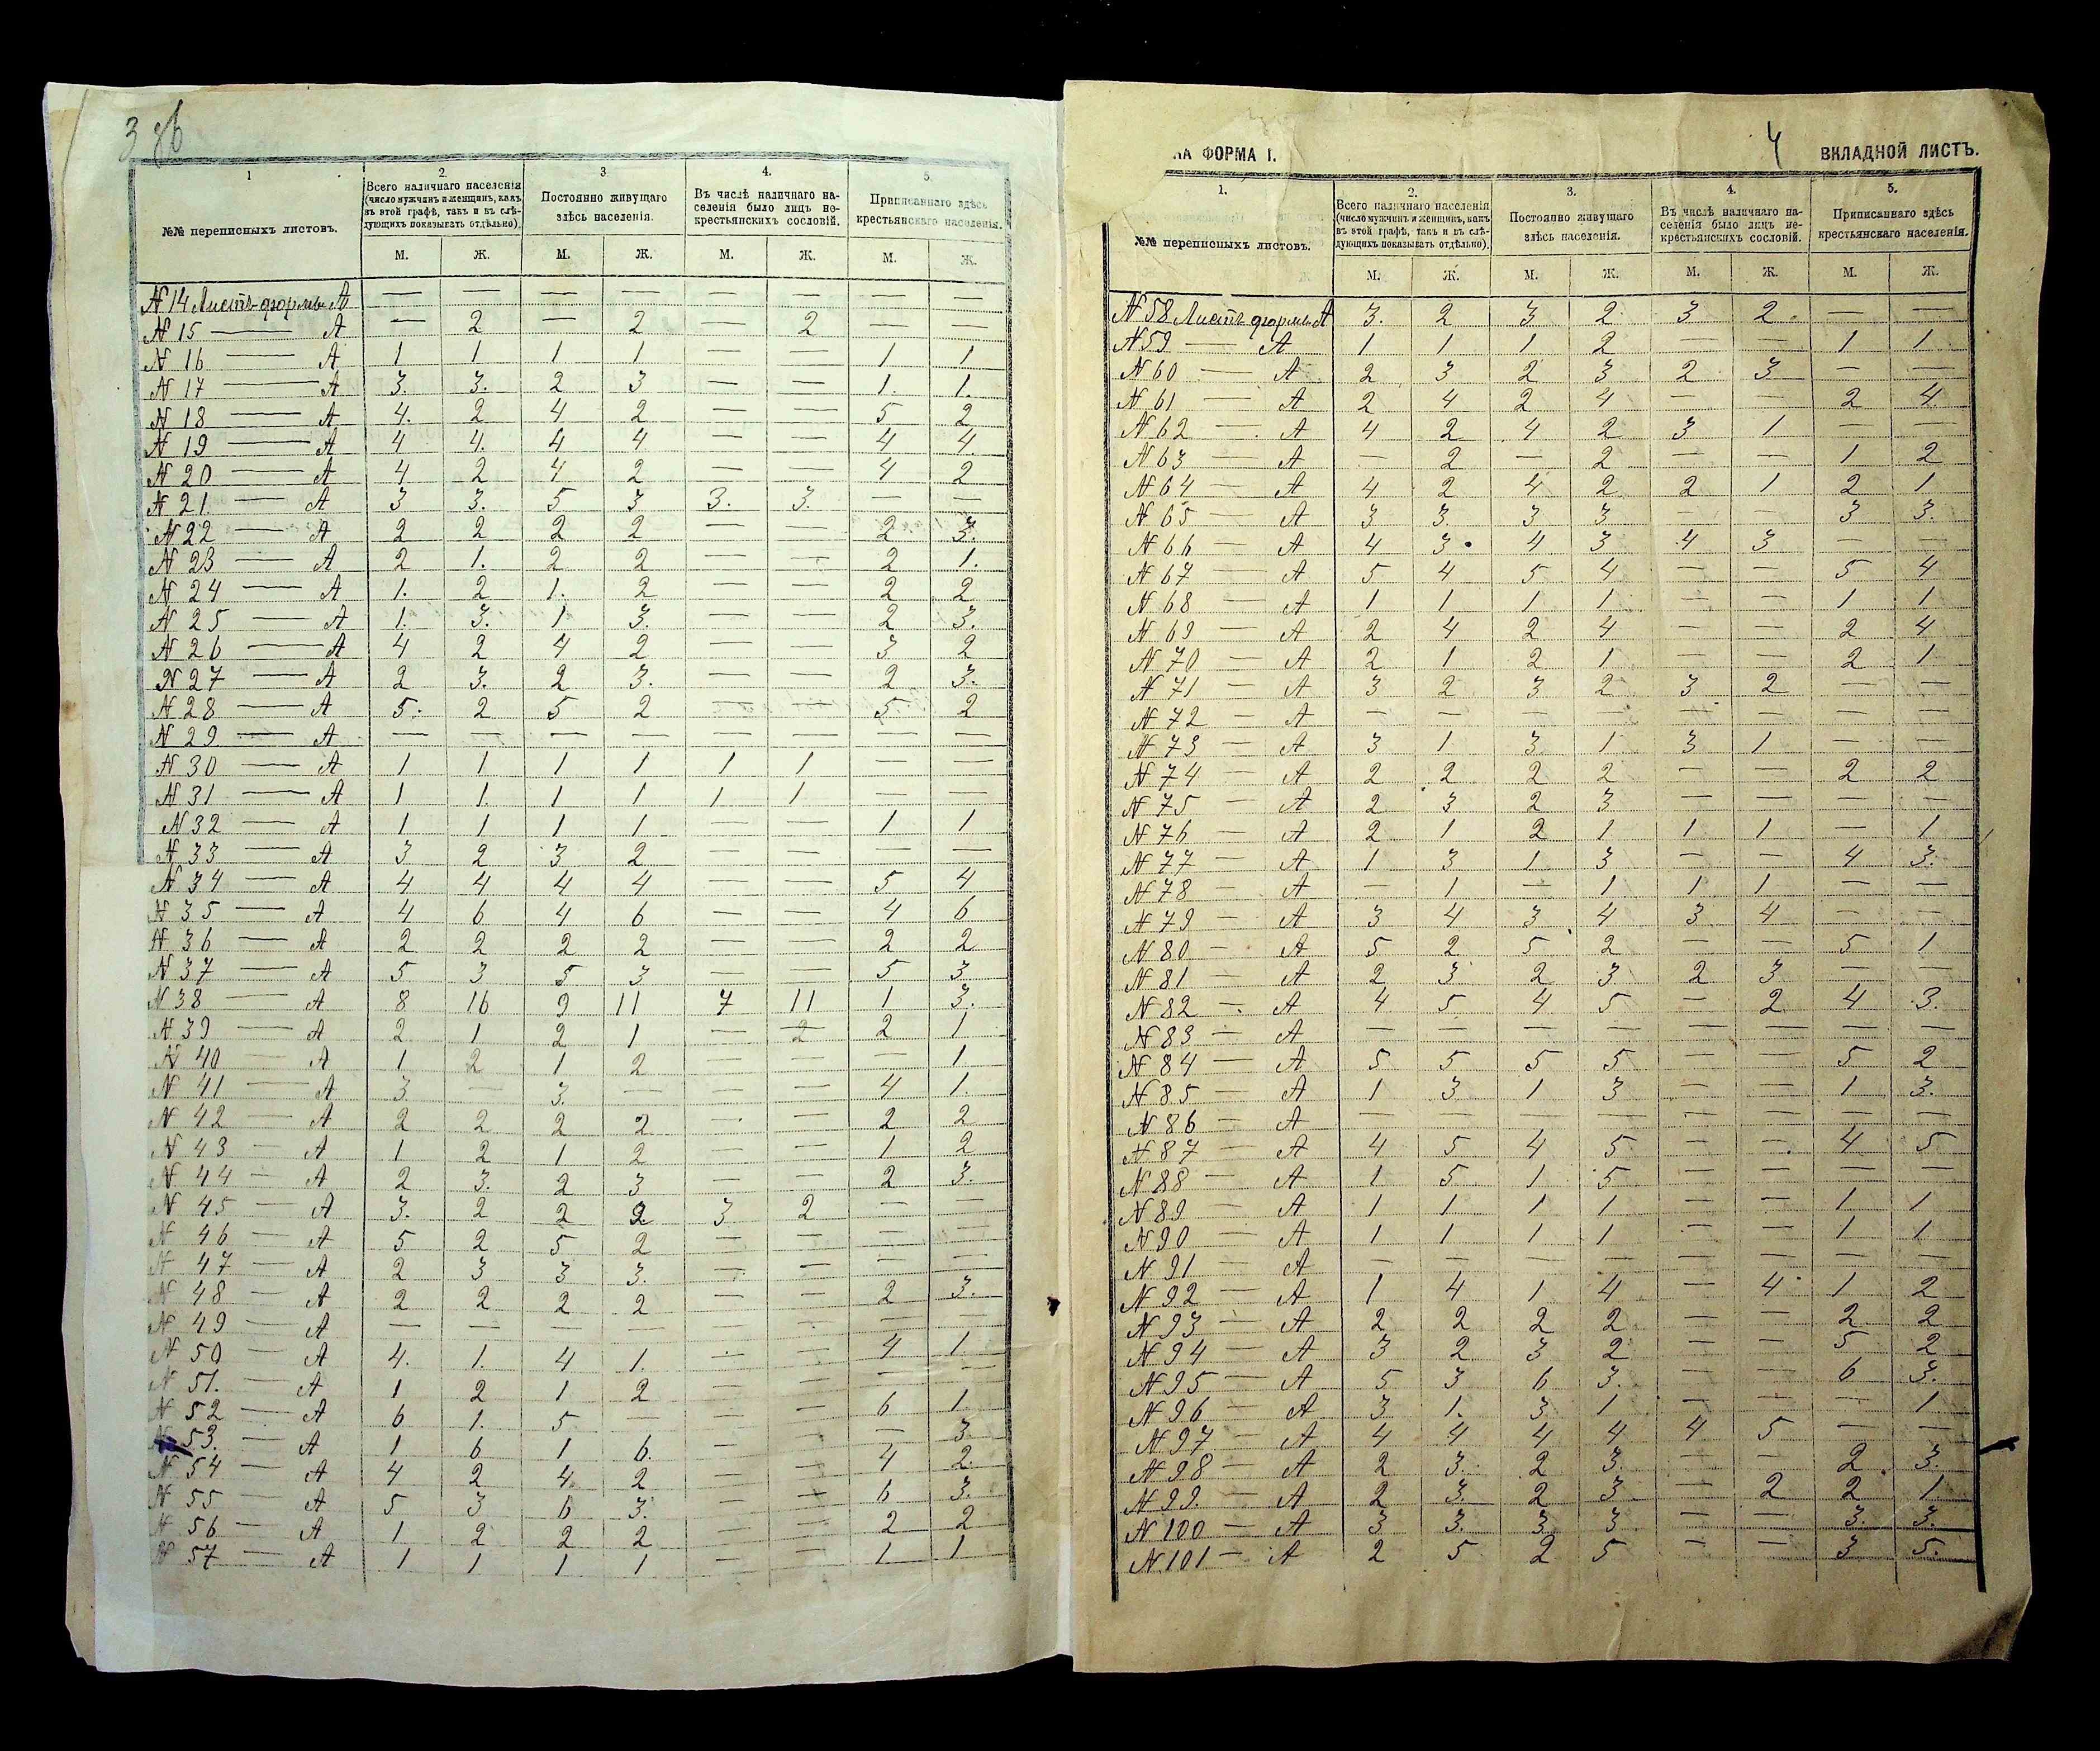 3 об
1
2.
3
4.
5
№№ переписныхъ листовъ.
Всего наличнаго населенія (число мужчинъ и женщинъ, какъ въ этой графѣ, такъ и въ слѣдующихъ показывать отдѣльно).
Постоянно живущаго здѣсь населенія.
Въ числѣ наличнаго населенія было лицъ некрестьянскихъ сословій.
Приписаннаго здѣсь крестьянскаго населенія.
М. Ж. М. Ж. М. Ж. М. Ж.
N 14 Листъ формы А — — — — — — — —
N 15 — А — 2 — 2 — 2 — —
N 16 — А 1 1 1 1 — — 1 1
N 17 — А 3. 3. 2 3 — — 1. 1.
N 18 — А 4. 2 4 2 — — 5 2
N 19 — А 4 4. 4 4 — — 4 4.
N 20 — А 4 2 4 2 — — 4 2
N 21 — А 3 3. 5 3 3. 3. — —
N 22 — А 2 2 2 2 — — 2 3.
N 23 — А 2 1. 2 2 — — 2 1.
N 24 — А 1. 2 1. 2 — — 2 2
N 25 — А 1. 3. 1 3. — — 2 3.
N 26 — А 4 2 4 2 — — 3 2
N 27 — А 2 3. 2 3. — — 2 3.
N 28 — А 5. 2 5 2 — — 5 2
N 29 — А — — — — — — — —
N 30 — А 1 1 1 1 1 1 — —
N 31 — А 1 1 1 1 1 1 — —
N 32 — А 1 1 1 1 — — 1 1
N 33 — А 3 2 3 2 — — — —
N 34 — А 4 4 4 4 — — 5 4
N 35 — А 4 6 4 6 — — 4 6
N 36 — А 2 2 2 2 — — 2 2
N 37 — А 5 3 5 3 — — 5 3
N 38 — А 8 16 9 11 7 11 1 3.
N 39 — А 2 1 2 1 — 2 2 1
N 40 — А 1 2 1 2 — — — 1
N 41 — А 3 — 3. — — — 4 1.
N 42 — А 2 2 2 2 — — 2 2
N 43 — А 1 2 1 2 — — 1 2
N 44 — А 2 3. 2 3 — — 2 3.
N 45 — А 3. 2 2 2 3 2 — —
N 46 — А 5 2 5 2 — — — —
N 47 — А 2 3 3 3. — — — —
N 48 — А 2 2 2 2 — — 2 3.
N 49 — А — — — — — — — —
N 50 — А 4. 1. 4 1. — — 4 1.
N 51. — А 1 2 1 2 — — — —
N 52 — А 6 1. 5 — — — 6 1
N 53. — А 1 6 1 6. — — — 3
N 54 — А 4 2 4 2 — — 4 2.
N 55 — А 5 3 6 3. — — 6 3.
N 56 — А 1 2 2 2 — — 2 2
N 57 — А 1 1 1 1 — — 1 1
КА ФОРМА I.
4
ВКЛАДНОЙ ЛИСТЪ.
1.
2.
3.
4.
5.
№№ переписныхъ листовъ.
Всего наличнаго населенія (число мужчинъ и женщинъ, какъ въ этой графѣ, такъ и въ слѣдующихъ показывать отдѣльно).
Постоянно живущаго здѣсь населенія.
Въ числѣ наличнаго населенія было лицъ некрестьянскихъ сословій.
Приписаннаго здѣсь крестьянскаго населенія.
М. Ж. М. Ж. М. Ж. М. Ж.
N 58 Листъ формы А 3. 2 3 2 3 2. — —
N 59 — А 1 1 1 2 — — 1 1
N 60 — А 2 3 2 3 2 3 — —
N 61 — А 2 4 2 4 — — 2 4
N 62 — А 4 2 4 2 3 1 — —
N 63 — А — 2 — 2 — — 1 2
N 64 — А 4 2 4 2 2 1 2 1
N 65 — А 3 3. 3 3 — — 3 3.
N 66 — А 4 3. 4 3 4 3 — —
N 67 — А 5 4 5 4 — — 5 4
N 68 — А 1 1 1 1 — — 1 1
N 69 — А 2 4 2 4 — — 2 4
N 70 — А 2 1 2 1 — — 2 1
N 71 — А 3 2 3 2 3 2 — —
N 72 — А — — — — — — — —
N 73 — А 3 1 3 1 3 1 — —
N 74 — А 2 2 2 2 — — 2 2
N 75 — А 2 3 2 3 — — — —
N 76 — А 2 1 2 1 1 1 — 1
N 77 — А 1 3 1 3 — — 4 3.
N 78 — А — 1 — 1 1 1 — —
N 79 — А 3 4 3 4 3 4 — —
N 80 — А 5 2 5 2 — — 5 1
N 81 — А 2 3 2 3 2 3 — —
N 82 — А 4 5 4 5 — 2 4 3.
N 83 — А — — — — — — — —
N 84 — А 5 5 5 5 — — 5 2
N 85 — А 1 3 1 3 — — 1 3.
N 86 — А — — — — — — — —
N 87 — А 4 5 4 5 — — 4 5
N 88 — А 1 5 1 5 — — — —
N 89 — А 1 1 1 1 — — 1 1
N 90 — А 1 1 1 1 — — 1 1
N 91 — А — — — — — — — —
N 92 — А 1 4 1 4 — 4 1 2
N 93 — А 2 2 2 2 — — 2 2
N 94 — А 3 2 3 2 — — 5 2
N 95 — А 5 3 6 3. — — 6 3.
N 96 — А 3 1. 3 1 — — — 1
N 97 — А 4 4 4 4 4 5 — —
N 98 — А 2 3. 2 3. — — 2 3.
N 99. — А 2 3. 2 3 — 2 2 1
N 100 — А 3 3. 3 3 — — 3. 3.
N 101 — А 2 5 2 5 — — 3 5.